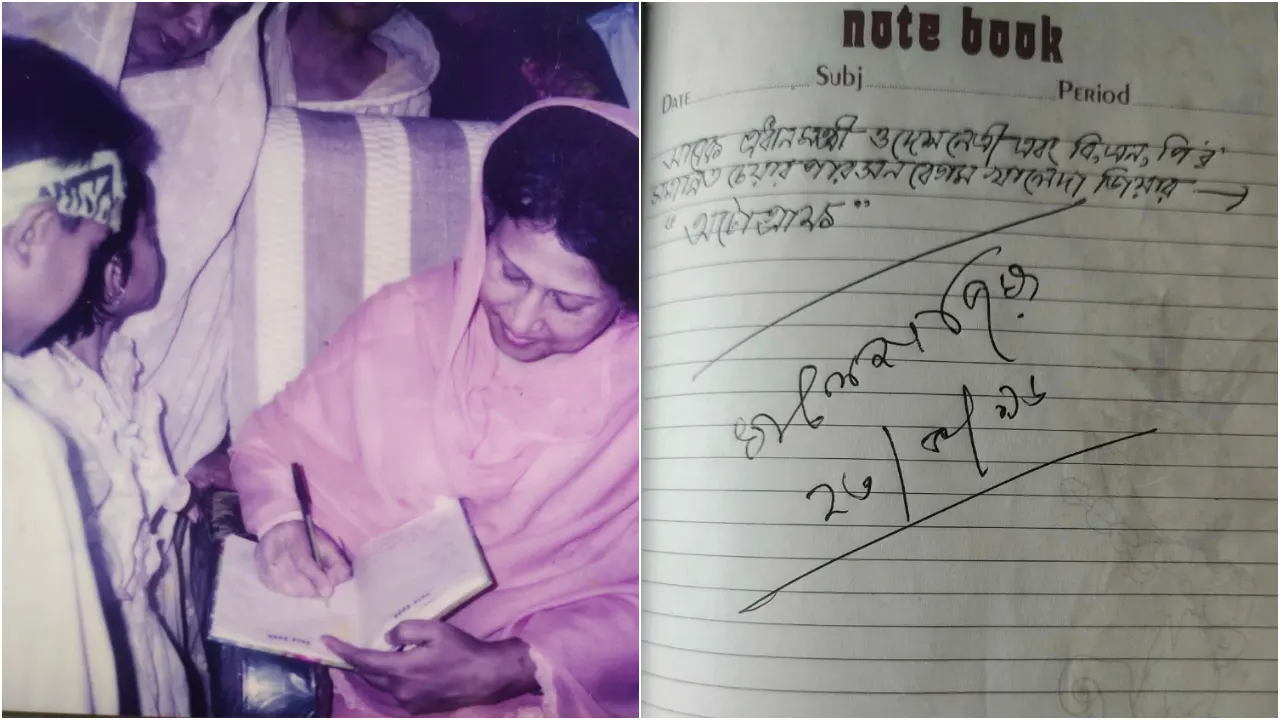 note book
DATE Subj PERIOD
সাবেক প্রধানমন্ত্রী ও দেশনেত্রী এবং বি,এন,পি'র
সম্মানিত চেয়ার পারসন বেগম খালেদা জিয়ার →
" অটোগ্রাফ "
খালেদা জিয়া